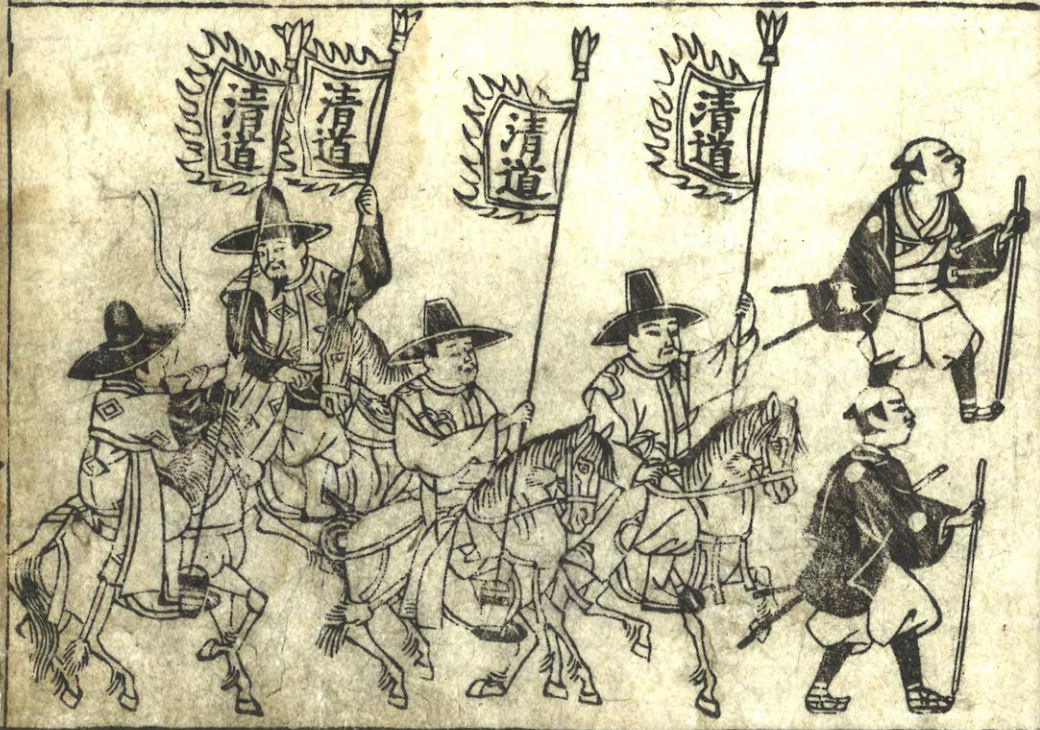 清道
清道
清道
清道